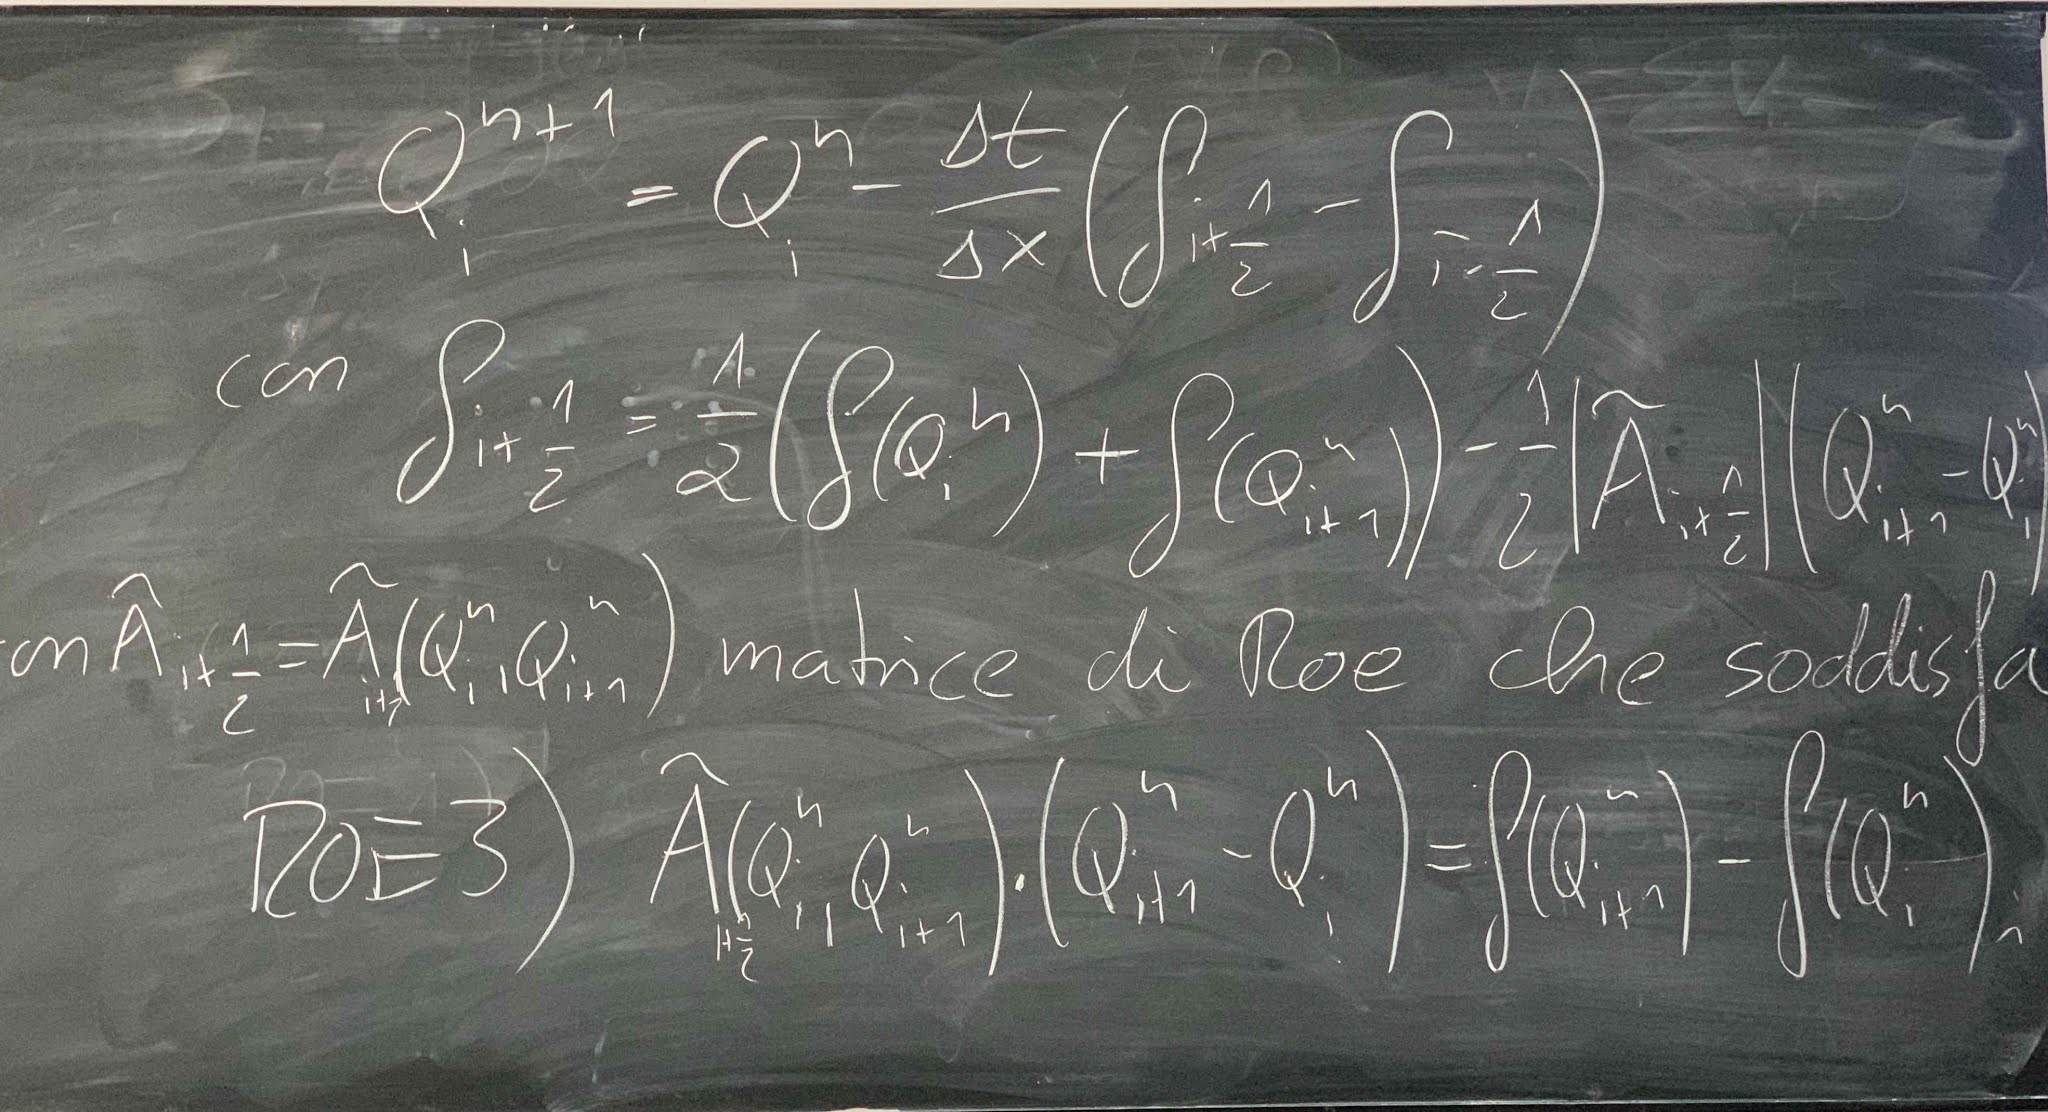 Q_i^{n+1} = Q_i^n - \frac{Δt}{Δx} ( f_{i+\frac{1}{2}} - f_{i-\frac{1}{2}} )
con f_{i+\frac{1}{2}} = \frac{1}{2} ( f(Q_i^n) + f(Q_{i+1}^n) ) - \frac{1}{2} | \tilde{A}_{i+\frac{1}{2}} | ( Q_{i+1}^n - Q_i^n )
con \tilde{A}_{i+\frac{1}{2}} = \tilde{A}_{i+\frac{1}{2}} ( Q_i^n, Q_{i+1}^n ) matrice di Roe che soddisfa
ROE 3) \tilde{A}_{i+\frac{1}{2}} ( Q_i^n, Q_{i+1}^n ) · ( Q_{i+1}^n - Q_i^n ) = f(Q_{i+1}^n) - f(Q_i^n)